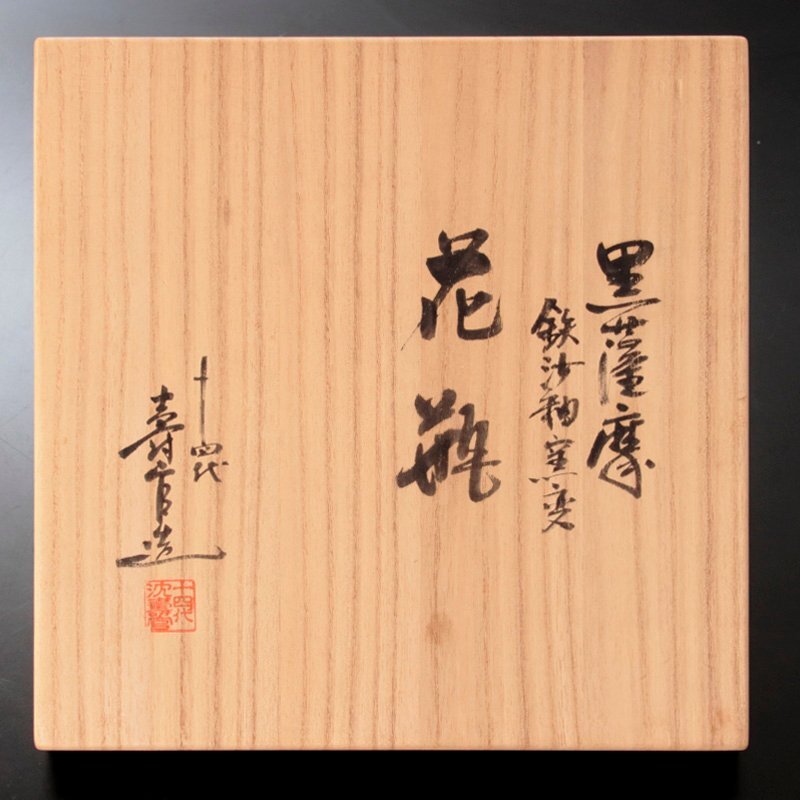 黒薩摩
鉄沙釉窯変
花瓶
十四代
壽官造
十四代
沈壽官